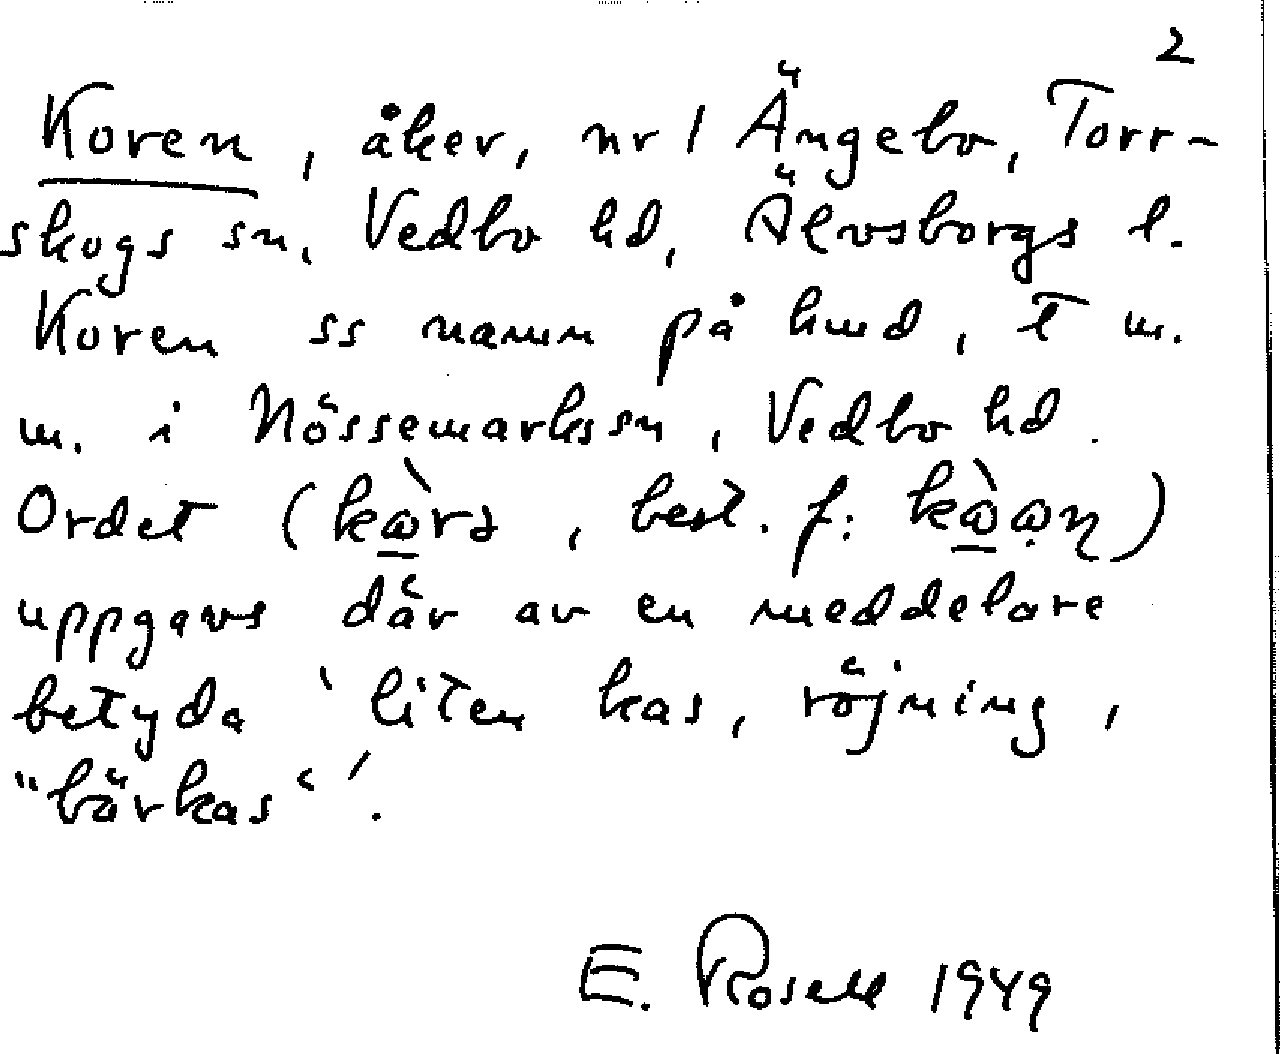 2
Koren, åker, nr 1 Ängebo, Torr-
skogs sn, Vedbo hd, Älvsborgs l.
Koren ss namn på hund, t m.
m. i Nössemarks sn, Vedbo hd.
Ordet (best. f:
uppgavs där av en meddelare
betyda 'liten kas, röjning,
"bärkas"'.
E. Rosell 1949